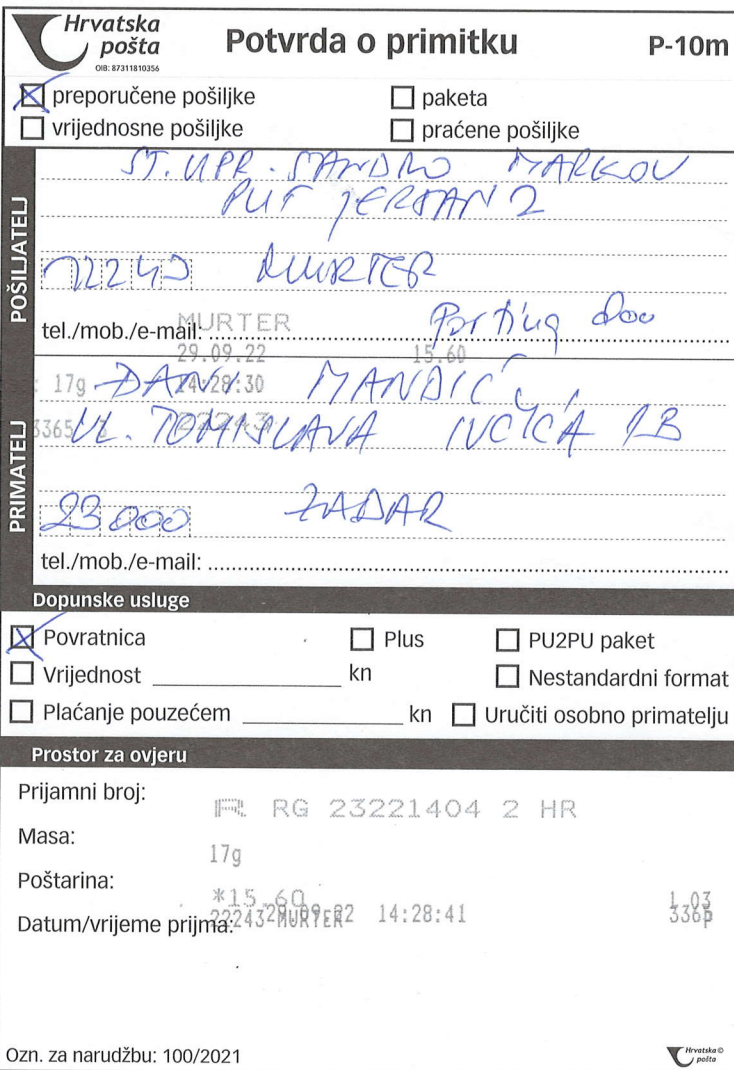 Hrvatska
pošta
OIB: 87311810356
Potvrda o primitku
P-10m
preporučene pošiljke
paketa
vrijednosne pošiljke
praćene pošiljke
POŠILJATELJ
ST. UPR. SANDRO MARKOV
PUT JERSAN 2
22243 MURTER
tel./mob./e-mail:
MURTER
doo
29.09.22 15.60
PRIMATELJ
17g 14:28:30
DANI MANDIĆ,
3365 22243
UL. TOMISLAVA IVČIĆA 1B
23000 ZADAR
tel./mob./e-mail:
Dopunske usluge
Povratnica
Plus
PU2PU paket
Vrijednost kn
Nestandardni format
Plaćanje pouzećem kn
Uručiti osobno primatelju
Prostor za ovjeru
Prijamni broj:
R RG 23221404 2 HR
Masa:
17g
Poštarina:
*15.60 1.03
Datum/vrijeme prijma:
22243 MURTER 29.09.22 14:28:41 3365
Ozn. za narudžbu: 100/2021
Hrvatska
pošta